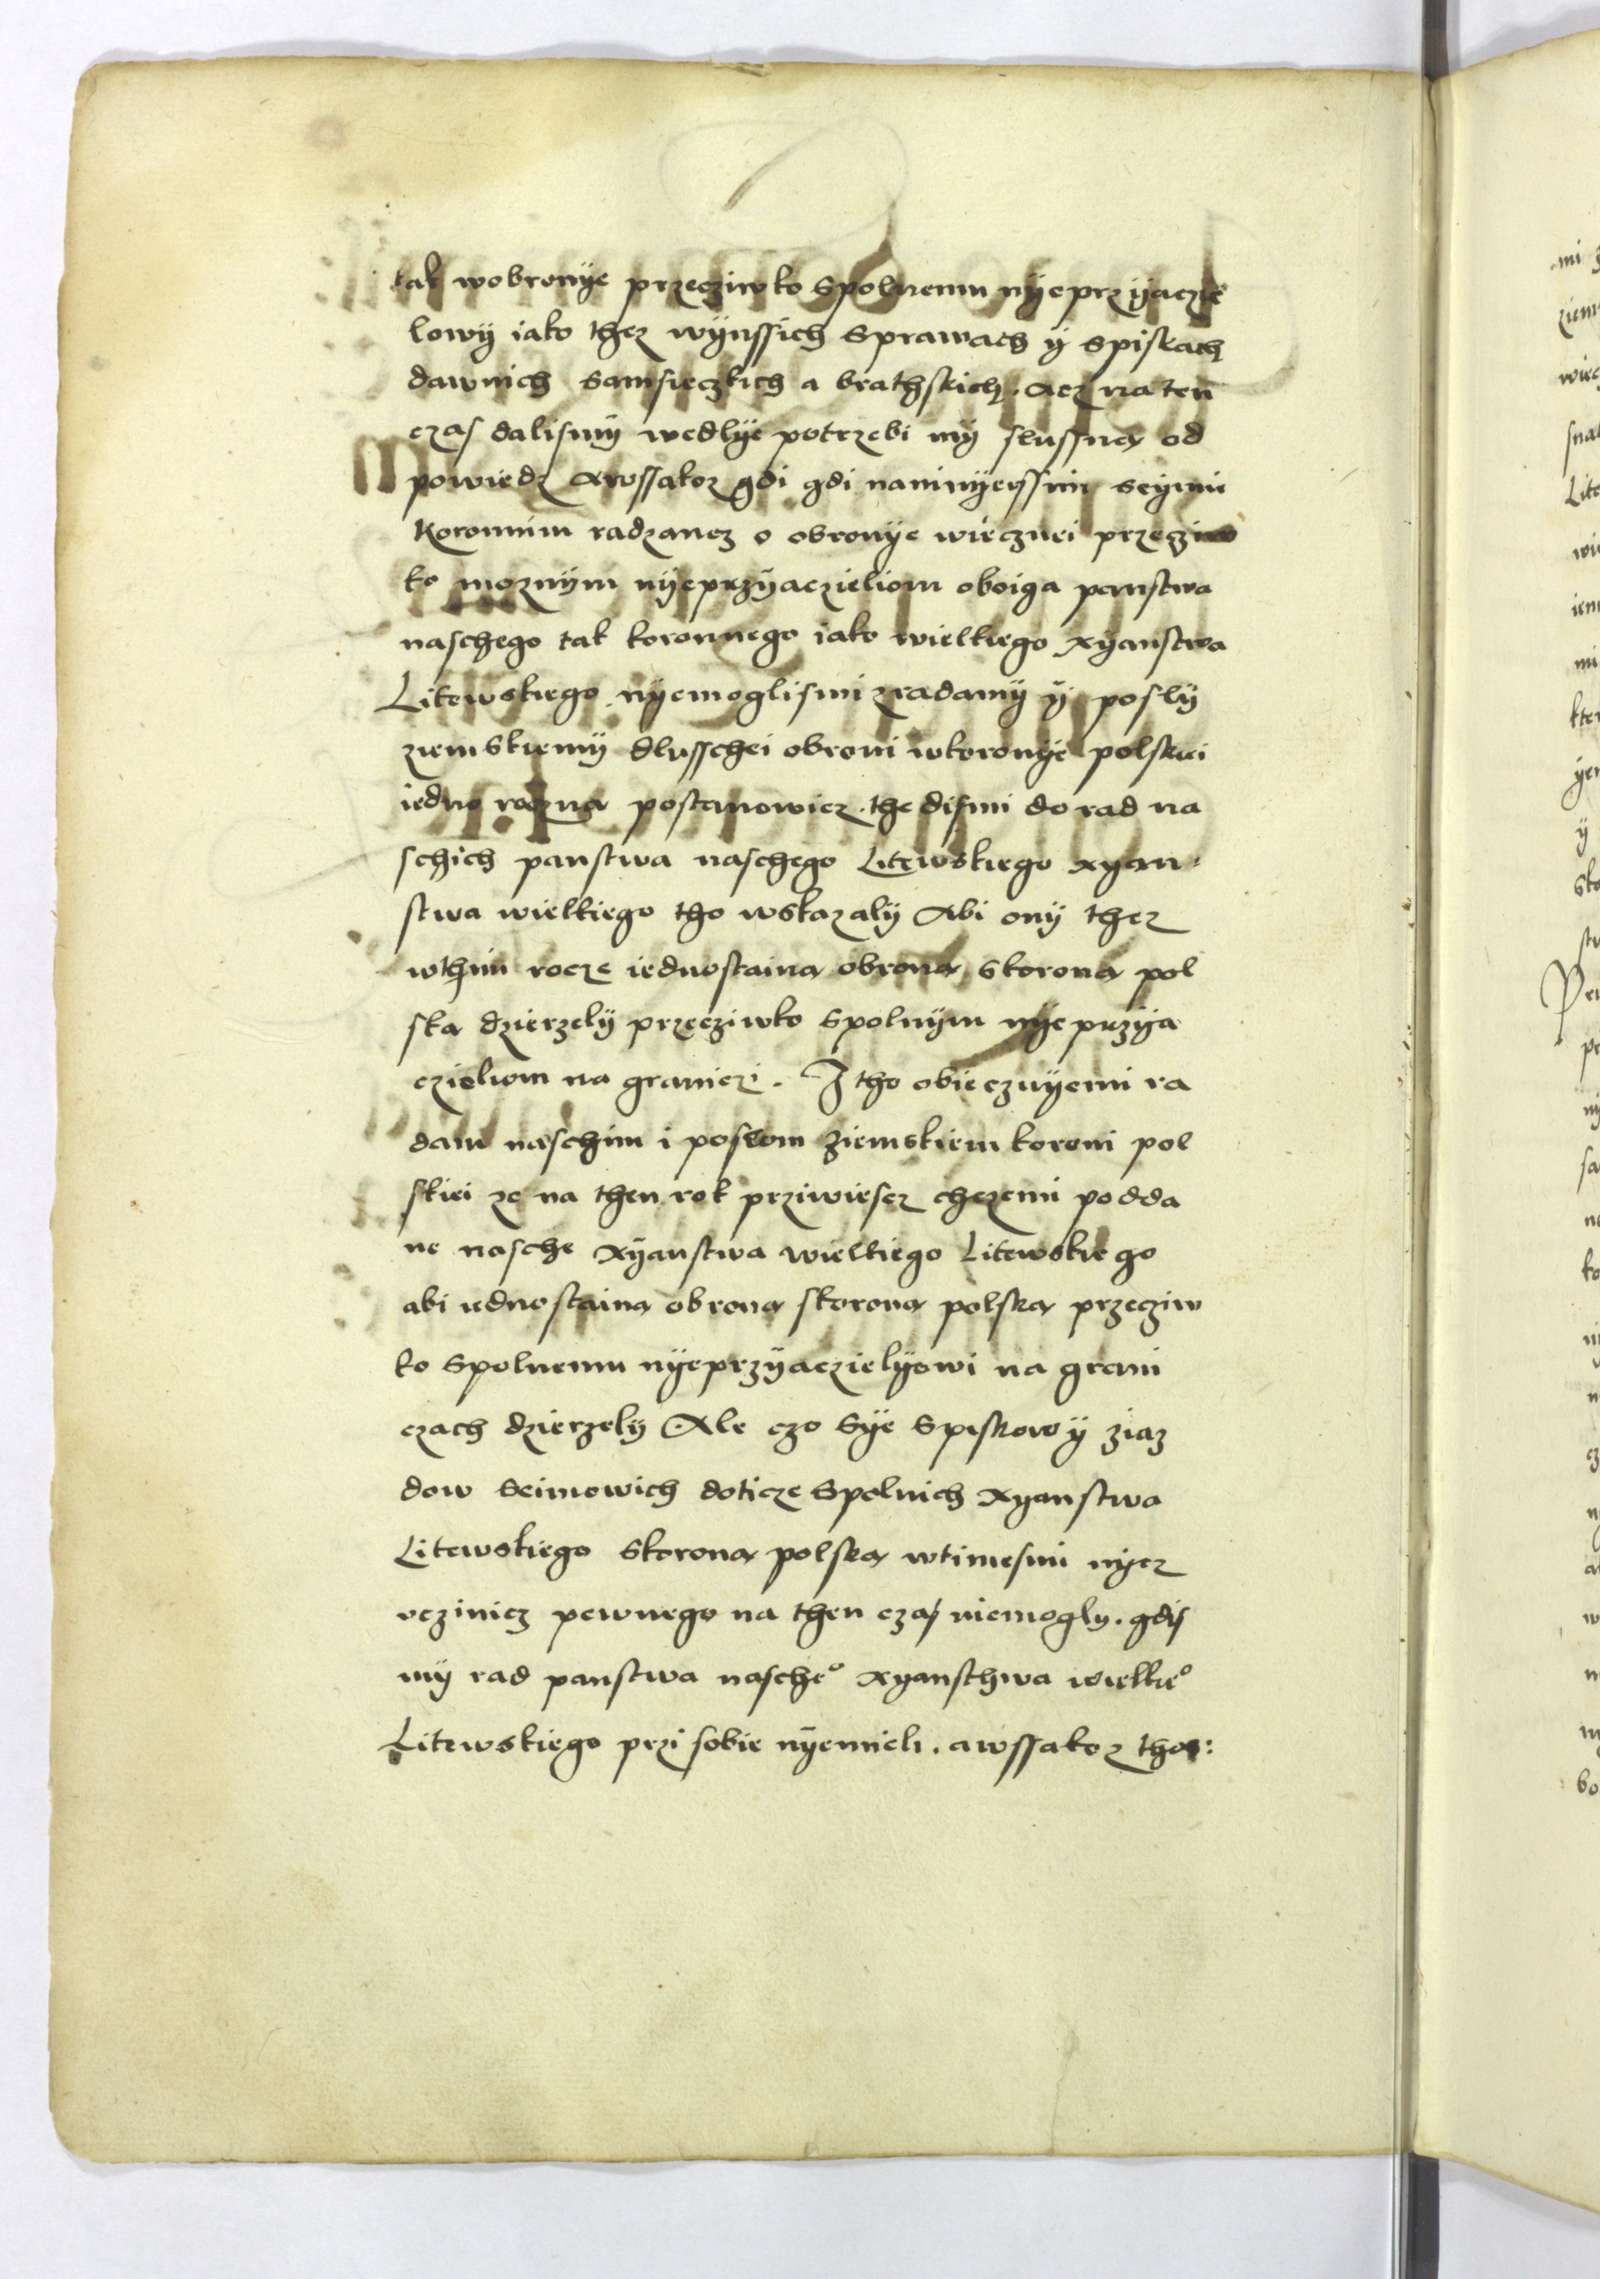 tak wobronÿe przecziwko Spolnemu nÿeprzÿaczie
lowÿ iako thez wÿnssich Sprawach ÿ Spiskach
dawnich Samsieczkich a brathskich. acz na ten
czas dalismÿ wedlÿe potrzebi mÿ slussna od
powiedz Awssakoz gdi gdi naninÿeÿssim Seÿmie
Koronnim radzancz o obronÿe wiecznei przecziw
ko moznÿm nÿeprzÿaczieliom oboiga panstwa
naschego tak koronnego iako wielkiego Xÿanstwa
Litewskiego nÿemoglismi z radamÿ ÿ poslÿ
ziemskiemÿ dlusschei obroni wkoronÿe polskei
iedno roczna postanowicz. the dismi do rad na
schich panstwa naschego Litewskiego xÿan-
stwa wielkiego tho wskazalÿ Abi onÿ thez
wthim rocze iednostaina obrona Skorona pol
ska dzierzelÿ przecziwko Spolnÿm nÿeprzÿa
czieliom na graniczi. I tho obieczuÿemi ra
dam naschim i poslom ziemskiem koroni pol
skiei ze na then rok prziwiescz chczemi podda
ne nasche xÿanstwa wielkiego Litewskiego
abi iednostaina obrona skorona polska przecziw
ko Spolnemu nÿeprzÿaczielÿowi na grani
czach dzierzelÿ Ale czo Sÿe Spiskow ÿ ziaz
dow Seimowich doticze Spolnich Xÿanstwa
Litewskiego Skorona polska wtimesmi nÿcz
vczinicz pewnego na then czas niemogly. gdis
mÿ rad panstwa nasche° xÿansthwa wielkie°
Litewskiego przi sobie nÿemieli. awssakoz thos: